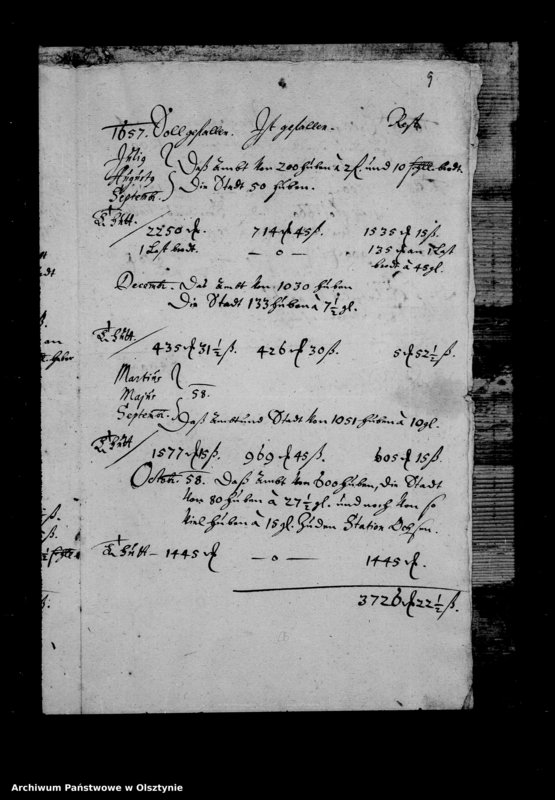 9
1657. Soll gefallen. Ist gefallen. Rest
Julij
Augusty Daß Ambt von 200 huben à 2 f. und 10 brodt.
Septemb. Die Stadt 50 huben.
2250 714 45 ß. 1535 15 ß.
1 Last brodt. — 0 — 135 an 1 Last
brodt à 45 gl.
Decemb. Daß Ambt von 1030 huben
Die Stadt 133 huben à 7 1/2 gl.
435 31 1/2 ß. 426 30 ß. 5 52 1/2 ß.
Martius
Majus 58.
Septemb. Daß Ambt und Stadt von 1051 huben à 10 gl.
1577 15 ß. 969 45 ß. 605 15 ß.
Octob. 58. Daß Ambt von 600 huben, die Stadt
von 80 huben à 27 1/2 gl. und noch von so
viel huben à 15 gl. zu den Station Ochsen.
1445 — 0 — 1445
3726 22 1/2 ß.
Archiwum Państwowe w Olsztynie